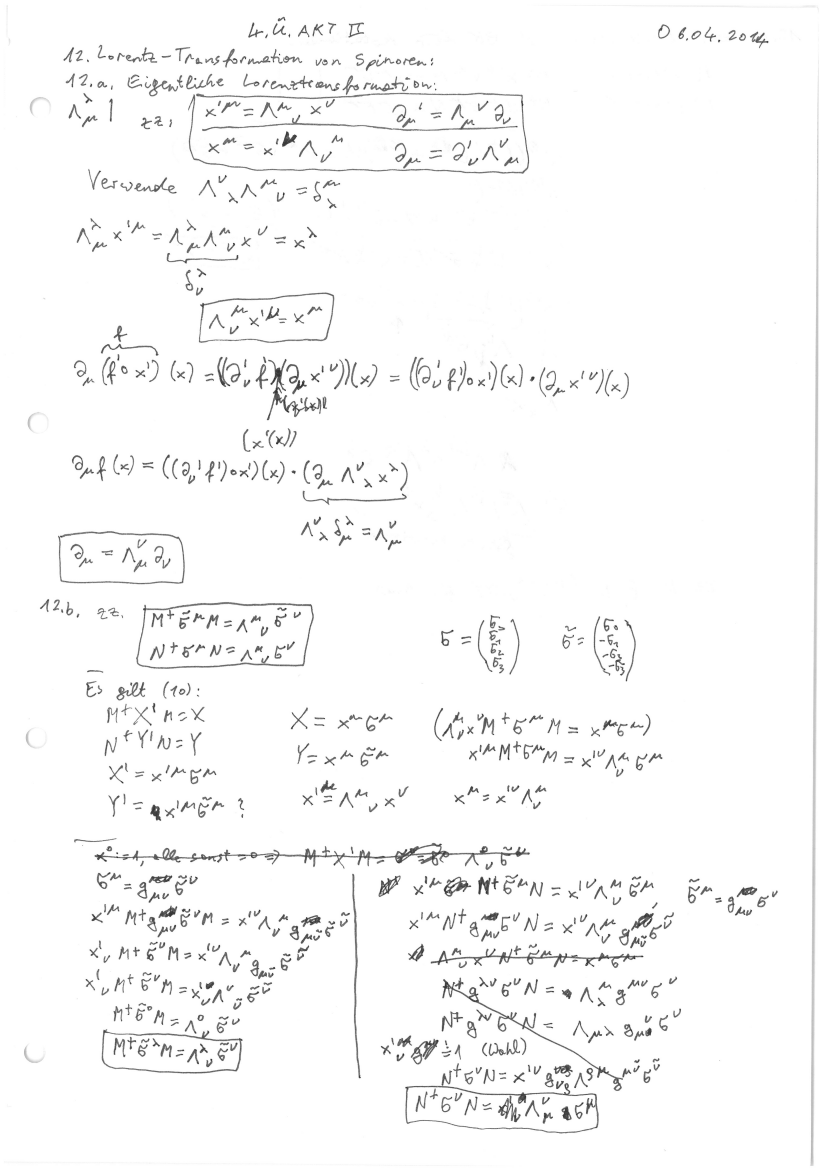 4.Ü. AKT II 06.04.2014
12. Lorentz-Transformation von Spinoren:
12.a. Eigentliche Lorenztransformation:
Λ_μ^λ | zz, x'^μ = Λ^μ_ν x^ν ∂_μ' = Λ_μ^ν ∂_ν
x^μ = x'^ν Λ_ν^μ ∂_μ = ∂'_ν Λ^ν_μ
Verwende Λ^ν_λ Λ^μ_ν = δ^μ_λ
Λ_μ^λ x'^μ = Λ_μ^λ Λ^μ_ν x^ν = x^λ
δ_ν^λ
Λ_ν^μ x'^ν = x^μ
f
∂_μ (f'∘x') (x) = ((∂'_ν f')(∂_μ x'^ν))(x) = ((∂'_ν f')∘x')(x) · (∂_μ x'^ν)(x)
(x'(x))
∂_μ f(x) = ((∂_ν' f')∘x')(x) · (∂_μ Λ^ν_λ x^λ)
Λ^ν_λ δ_μ^λ = Λ^ν_μ
∂_μ = Λ_μ^ν ∂_ν
12.b. zz. M^+ σ̃^μ M = Λ^μ_ν σ̃^ν
N^+ σ^μ N = Λ^μ_ν σ^ν
Es gilt (10):
M^+ X' M = X X = x^μ σ^μ (Λ^μ_ν x^ν M^+ σ^μ M = x^μ σ^μ)
N^+ Y' N = Y Y = x^μ σ̃^μ x'^μ M^+ σ^μ M = x'^ν Λ_ν^μ σ^μ
X' = x'^μ σ^μ
Y' = x'^μ σ̃^μ ? x'^μ = Λ^μ_ν x^ν x^μ = x'^ν Λ_ν^μ
x^0 := 1, alle sonst = 0 ⇒ M^+ X' M = Λ^0_ν σ̃^ν
σ^μ = g_μν σ̃^ν
x'^μ M^+ g_μν σ̃^ν M = x'^ν Λ_ν^μ g_μν̃ σ̃^ν̃
x'_ν M^+ σ̃^ν M = x'^ν Λ_ν^μ g_μν̃ σ̃^ν̃
x'_ν M^+ σ̃^ν M = x'_ν Λ^ν_ν̃ σ̃^ν̃
M^+ σ̃^0 M = Λ^0_ν σ̃^ν
M^+ σ̃^λ M = Λ^λ_ν σ̃^ν
x'^μ N^+ σ̃^μ N = x'^ν Λ_ν^μ σ̃^μ σ̃^μ = g_μν σ^ν
x'^μ N^+ g_μν σ^ν N = x'^ν Λ_ν^μ g_μν̃ σ^ν̃
Λ^μ_ν x^ν N^+ σ̃^μ N = x^μ σ^μ
N^+ g^λν σ^ν N = Λ_λ^μ g^μν σ^ν
N^+ g^λν σ^ν N = Λ_μλ g^μν σ^ν
x'_ν ≟ 1 (Wahl)
N^+ σ^ν N = x'^ν g_νϱ Λ^ϱμ g^μν̃ σ^ν̃
N^+ σ^ν N = Λ_μ^ν σ^μ